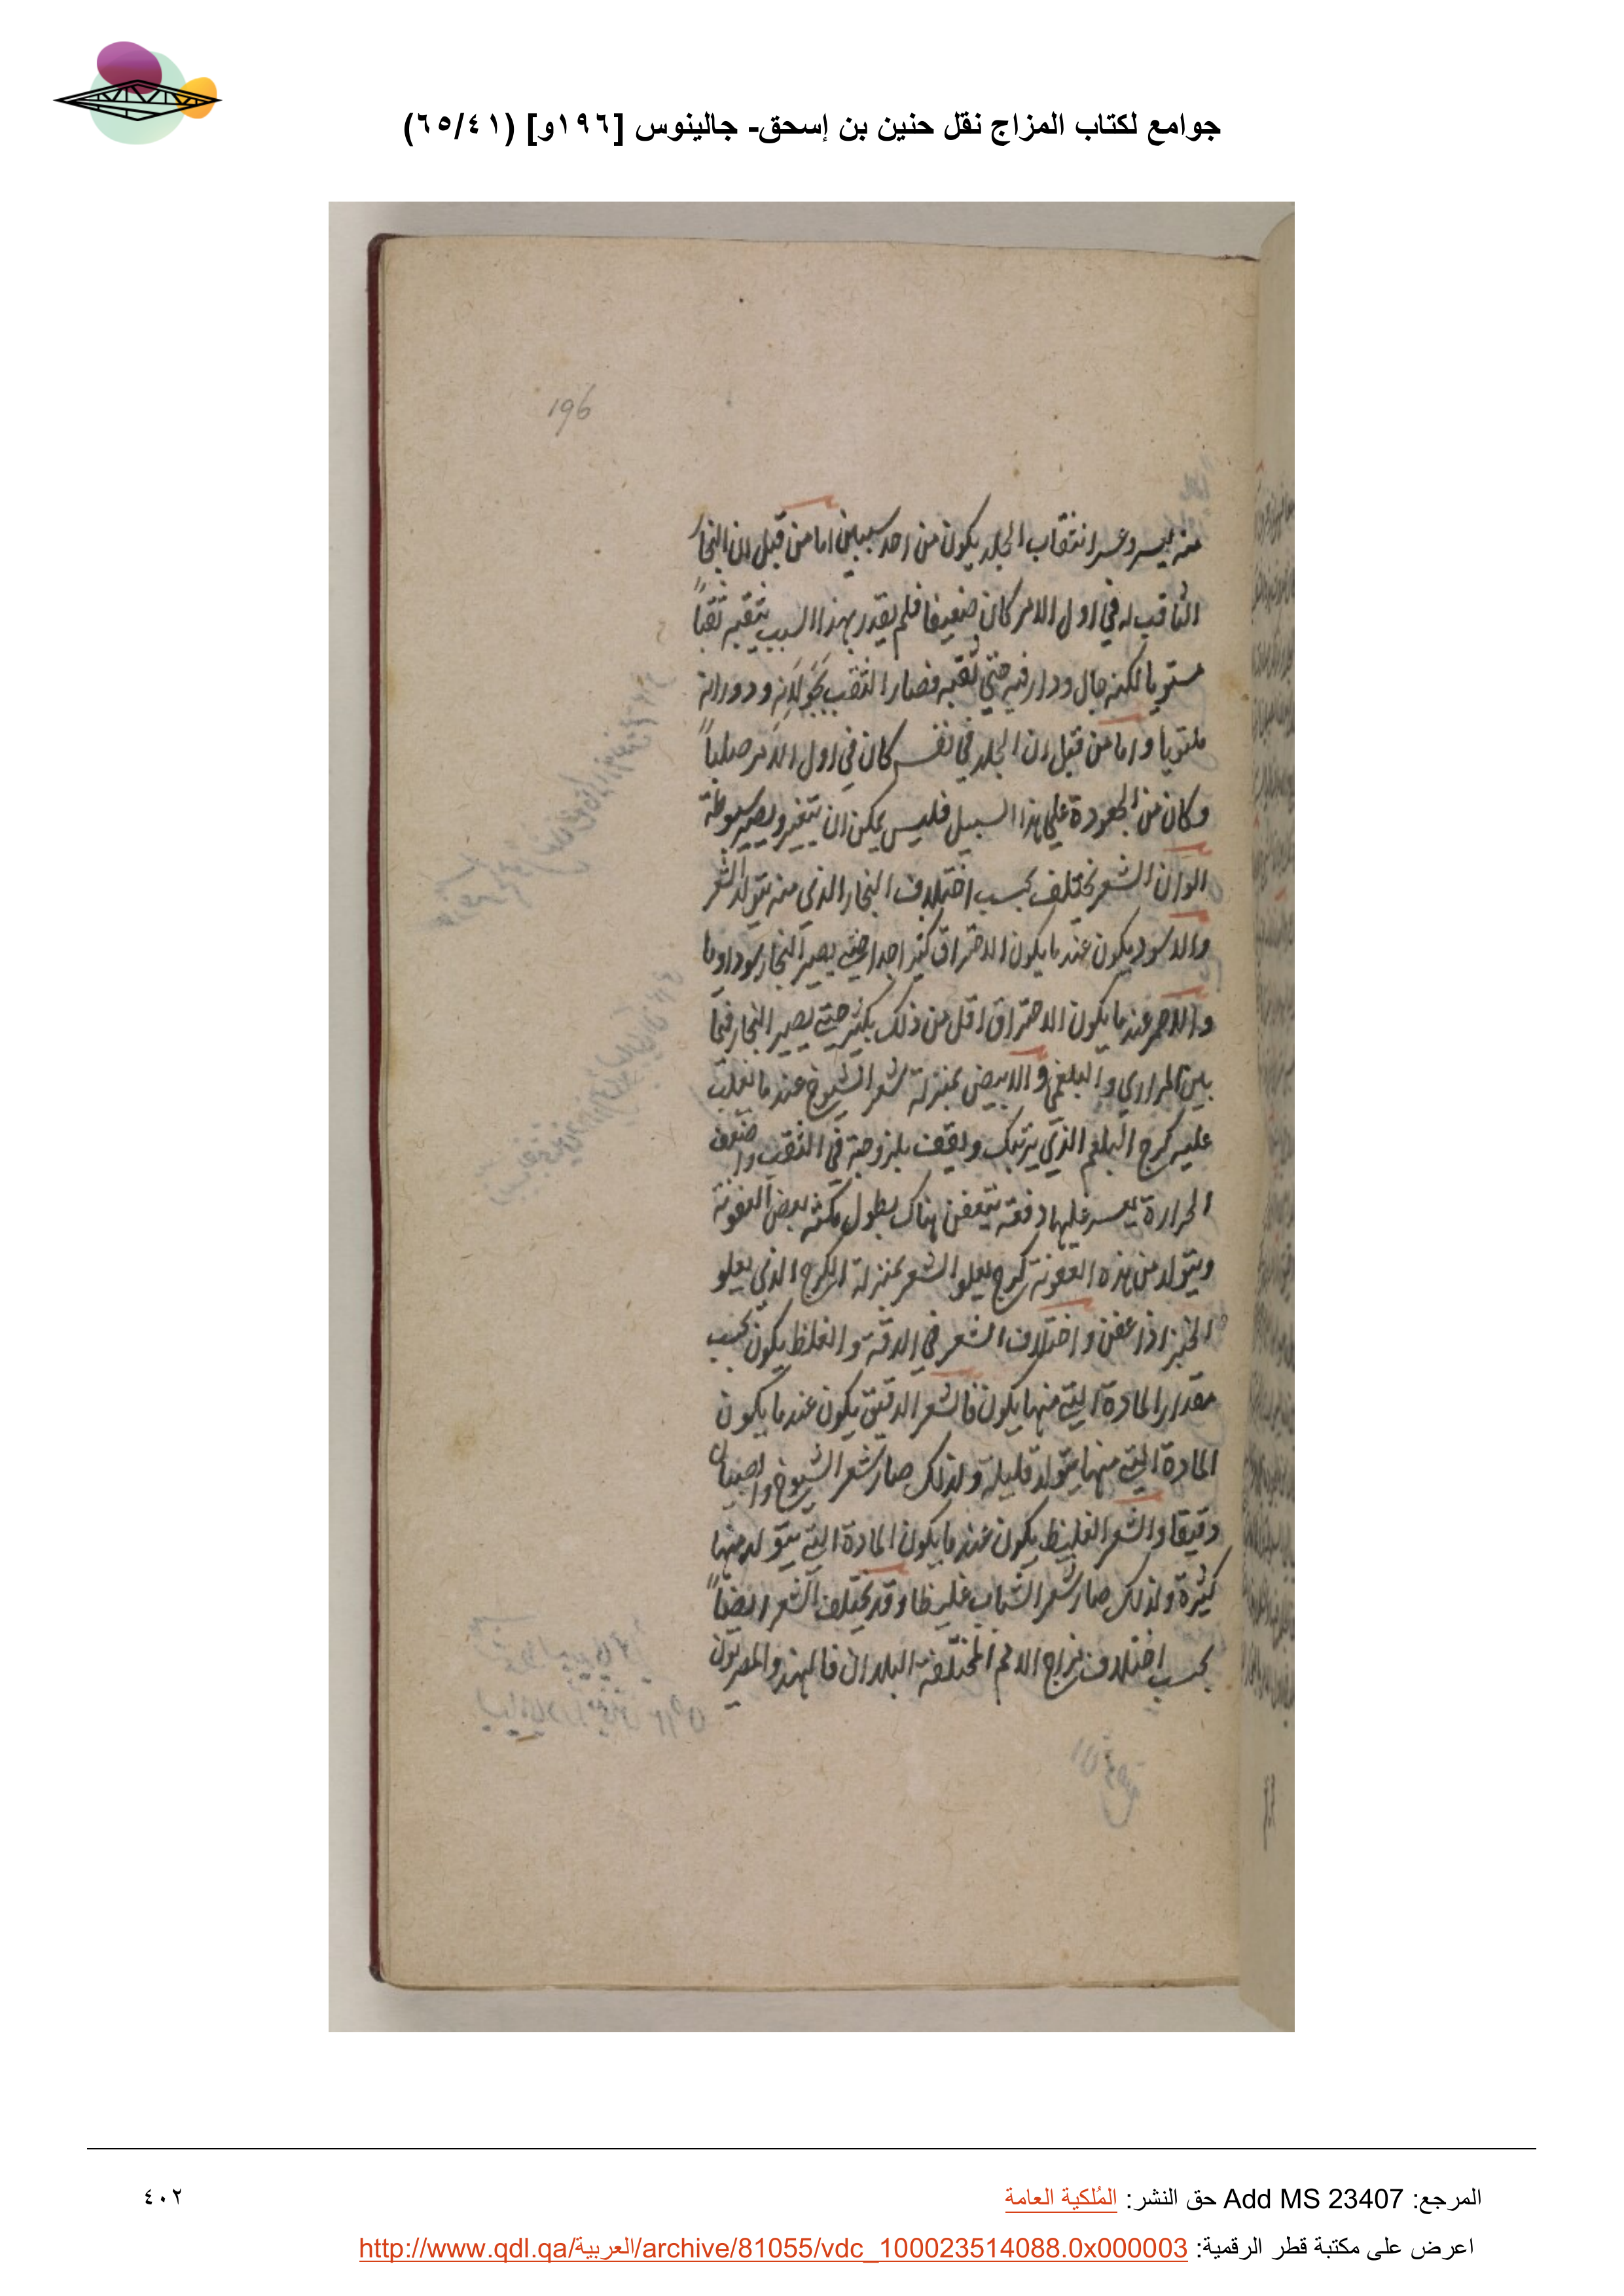 جوامع لكتاب المزاج نقل حنين بن إسحق- جالينوس [١٩٦و] (٦٥/٤١)
196
منه يسير وعسر انتقاب الجلد يكون من احد سببين اما من قبل ان البخار
الثاقب له في اول الامر كان ضعيفا فلم يقدر بهذا السبب يثقبه ثقباً
مستويا لكنه جال ودار فيه حتى ثقبه فصار الثقب بجولانه ودورانه
ملتويا واما من قبل ان الجلد في نفسه كان في اول الامر صلباً
وكان من الجعودة على هذا السبيل فليس يمكن ان يتغير ويصير سبوطة
الوان الشعر تختلف بحسب اختلاف البخار الذي منه يتولد الشعر
والاسود يكون عند ما يكون الاحتراق كثيرا جدا حتى يصير البخار سوداويا
والاحمر عند ما يكون الاحتراق اقل من ذلك بكثير حتى يصير البخار فيما
بين المراري والبلغمي والابيض بمنزلة شعر الشيوخ عند ما يغلب
عليه كرج البلغم الذي يرتبك ويقف بلزوجته في الثقب وضعف
الحرارة يعسر عليها دفعه يتعفن هناك بطول مكثه بعض العفونة
ويتولد من هذه العفونة كرج يعلو الشعر بمنزلة الكرج الذي يعلو
الخبز اذا عفن واختلاف الشعر في الدقة والغلظ يكون بحسب
مقدار المادة التي منها يكون فالشعر الدقيق يكون عند ما يكون
المادة التي منها يتولد قليلة ولذلك صار شعر الشيوخ والصبيان
دقيقا والشعر الغليظ يكون عند ما يكون المادة التي يتولد منها
كثيرة ولذلك صار شعر الشباب غليظا وقد يختلف الشعر ايضاً
بحسب اختلاف مزاج الامم المختلفة البلدان فالهند والمصريون
المرجع: Add MS 23407 حق النشر: المُلكية العامة
٤٠٢
اعرض على مكتبة قطر الرقمية: http://www.qdl.qa/العربية/archive/81055/vdc_100023514088.0x000003